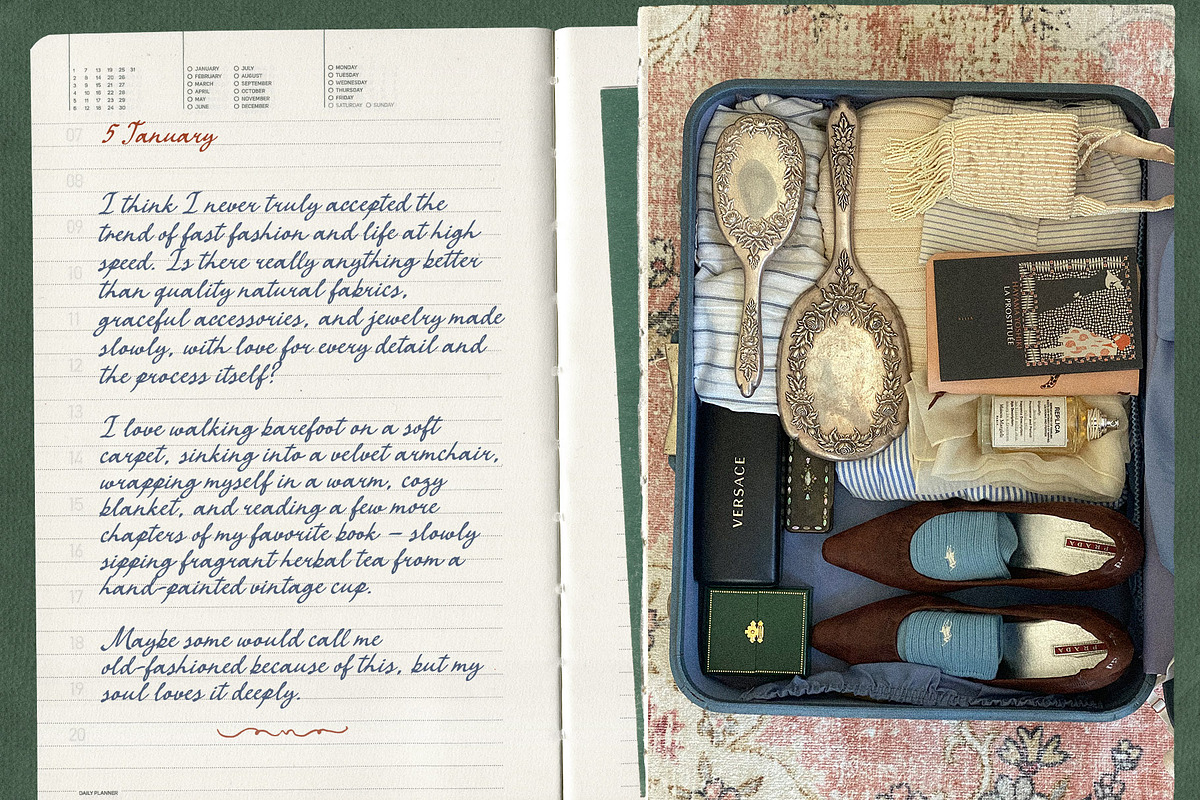 1 7 13 19 25 31
2 8 14 20 26
3 9 15 21 27
4 10 16 22 28
5 11 17 23 29
6 12 18 24 30
JANUARY
FEBRUARY
MARCH
APRIL
MAY
JUNE
JULY
AUGUST
SEPTEMBER
OCTOBER
NOVEMBER
DECEMBER
MONDAY
TUESDAY
WEDNESDAY
THURSDAY
FRIDAY
SATURDAY SUNDAY
07
5 January
08
I think I never truly accepted the
09
trend of fast fashion and life at high
speed. Is there really anything better
10
than quality natural fabrics,
11
graceful accessories, and jewelry made
slowly, with love for every detail and
12
the process itself?
13
I love walking barefoot on a soft
14
carpet, sinking into a velvet armchair,
wrapping myself in a warm, cozy
15
blanket, and reading a few more
chapters of my favorite book – slowly
16
sipping fragrant herbal tea from a
17
hand-painted vintage cup.
18
Maybe some would call me
old-fashioned because of this, but my
19
soul loves it deeply.
20
DAILY PLANNER
HAYAMA YOSHIKI
LA PROSTITUÉE
REPLICA
VERSACE
PRADA
PRADA